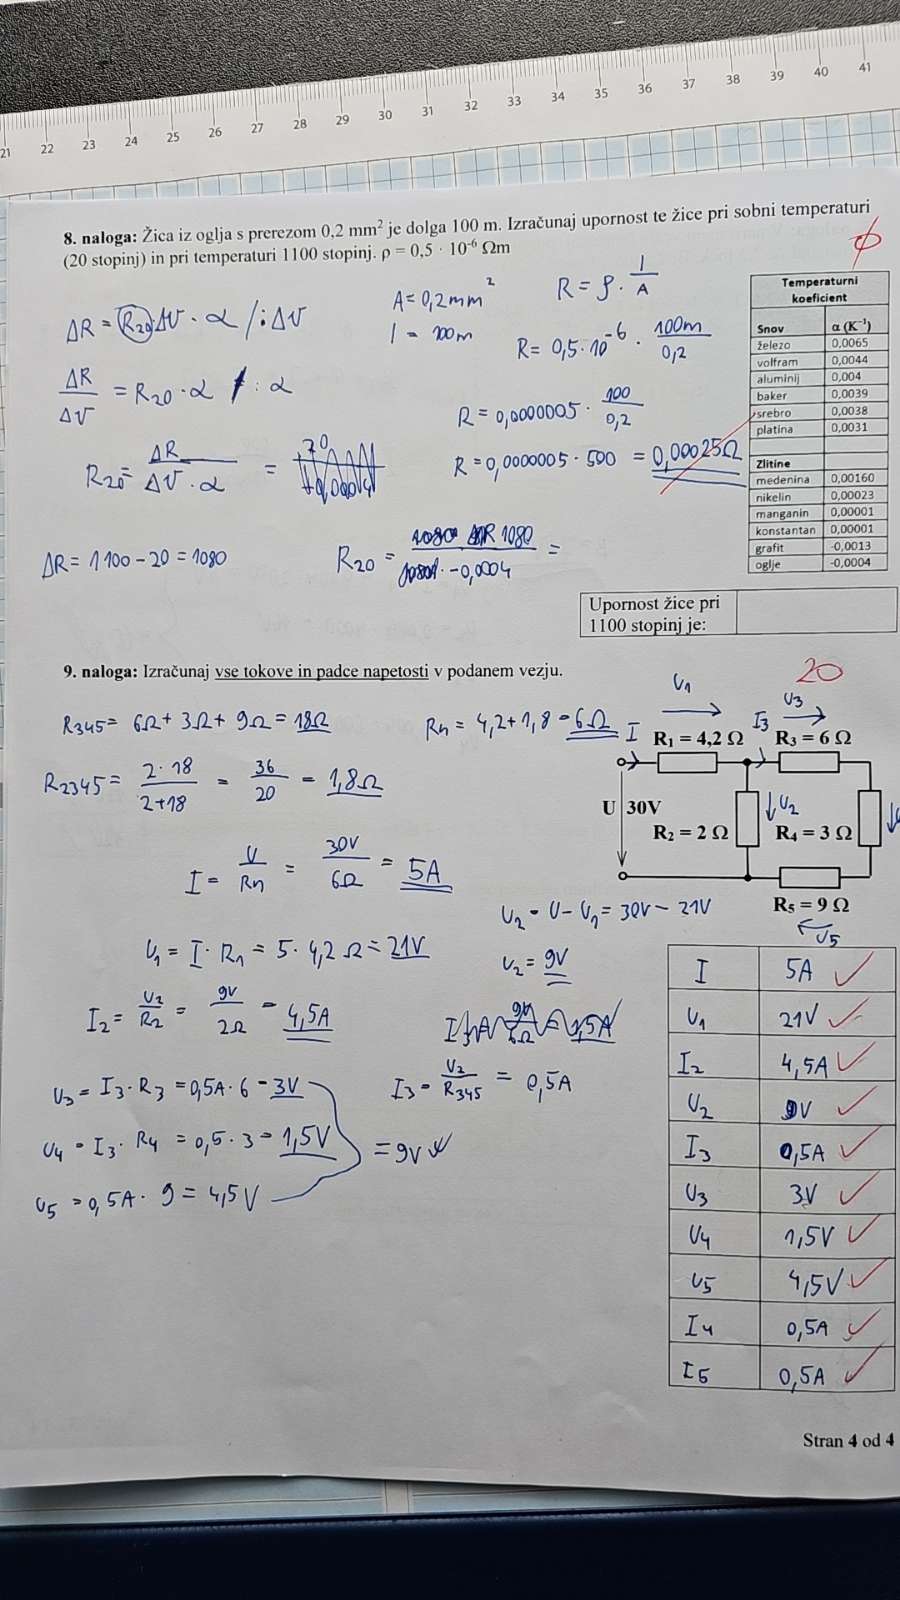 21 22 23 24 25 26 27 28 29 30 31 32 33 34 35 36 37 38 39 40 41
8. naloga: Žica iz oglja s prerezom 0,2 mm² je dolga 100 m. Izračunaj upornost te žice pri sobni temperaturi
(20 stopinj) in pri temperaturi 1100 stopinj. ρ = 0,5 · 10⁻⁶ Ωm
ΔR = R20 · Δϑ · α /: Δϑ
ΔR/Δϑ = R20 · α /: α
R20 = ΔR/(Δϑ · α) =
ΔR = 1100 - 20 = 1080
A = 0,2 mm²
l = 100m
R = ρ · l/A
R = 0,5 · 10⁻⁶ · 100m/0,2
R = 0,0000005 · 100/0,2
R = 0,0000005 · 500 = 0,00025Ω
R20 = 1080/-0,0004 =
Temperaturni
koeficient
Snov α (K⁻¹)
železo 0,0065
volfram 0,0044
aluminij 0,004
baker 0,0039
srebro 0,0038
platina 0,0031
Zlitine
medenina 0,00160
nikelin 0,00023
manganin 0,00001
konstantan 0,00001
grafit -0,0013
oglje -0,0004
Upornost žice pri
1100 stopinj je:
9. naloga: Izračunaj vse tokove in padce napetosti v podanem vezju.
20
R345 = 6Ω + 3Ω + 9Ω = 18Ω
Rn = 4,2 + 1,8 = 6Ω
R2345 = 2 · 18/2+18 = 36/20 = 1,8Ω
I = U/Rn = 30V/6Ω = 5A
U1 = I · R1 = 5 · 4,2 Ω = 21V
I2 = U2/R2 = 9V/2Ω = 4,5A
U3 = I3 · R3 = 0,5A · 6 = 3V
U4 = I3 · R4 = 0,5 · 3 = 1,5V
U5 = 0,5A · 9 = 4,5V
= 9V
U2 = U - U1 = 30V - 21V
U2 = 9V
I3 = U2/R345 = 0,5A
U1
U3
I
I3
R1 = 4,2 Ω R3 = 6 Ω
U 30V
U2
R2 = 2 Ω R4 = 3 Ω
R5 = 9 Ω
U5
I 5A
U1 21V
I2 4,5A
U2 9V
I3 0,5A
U3 3V
U4 1,5V
U5 4,5V
I4 0,5A
I5 0,5A
Stran 4 od 4